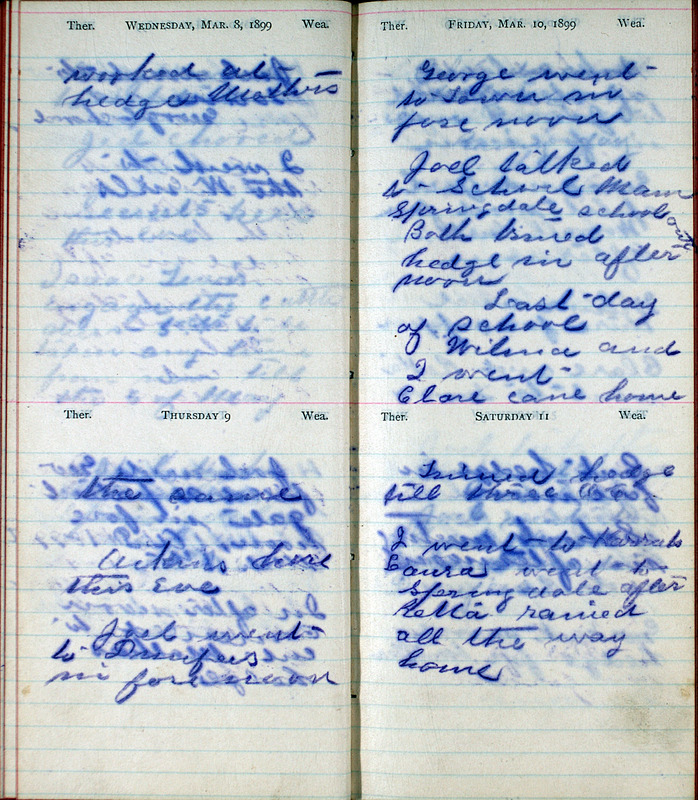 Ther. WEDNESDAY, MAR. 8, 1899 Wea.
worked at
hedge Mathers
I went to
Ther. THURSDAY 9 Wea.
the same
here
this Eve
Joel went
to
in fore noon
Ther. FRIDAY, MAR. 10, 1899 Wea.
George went
to Town in
fore noon
Joel talked
to School Mam
Springdale school
Both trimed
hedge in after
noon
Last day
of school
Wilma and
I went
Clare came home
Ther. SATURDAY 11 Wea.
Trimed hedge
till three
I went to
Laura went to
Springdale after
Retta rained
all the way
home